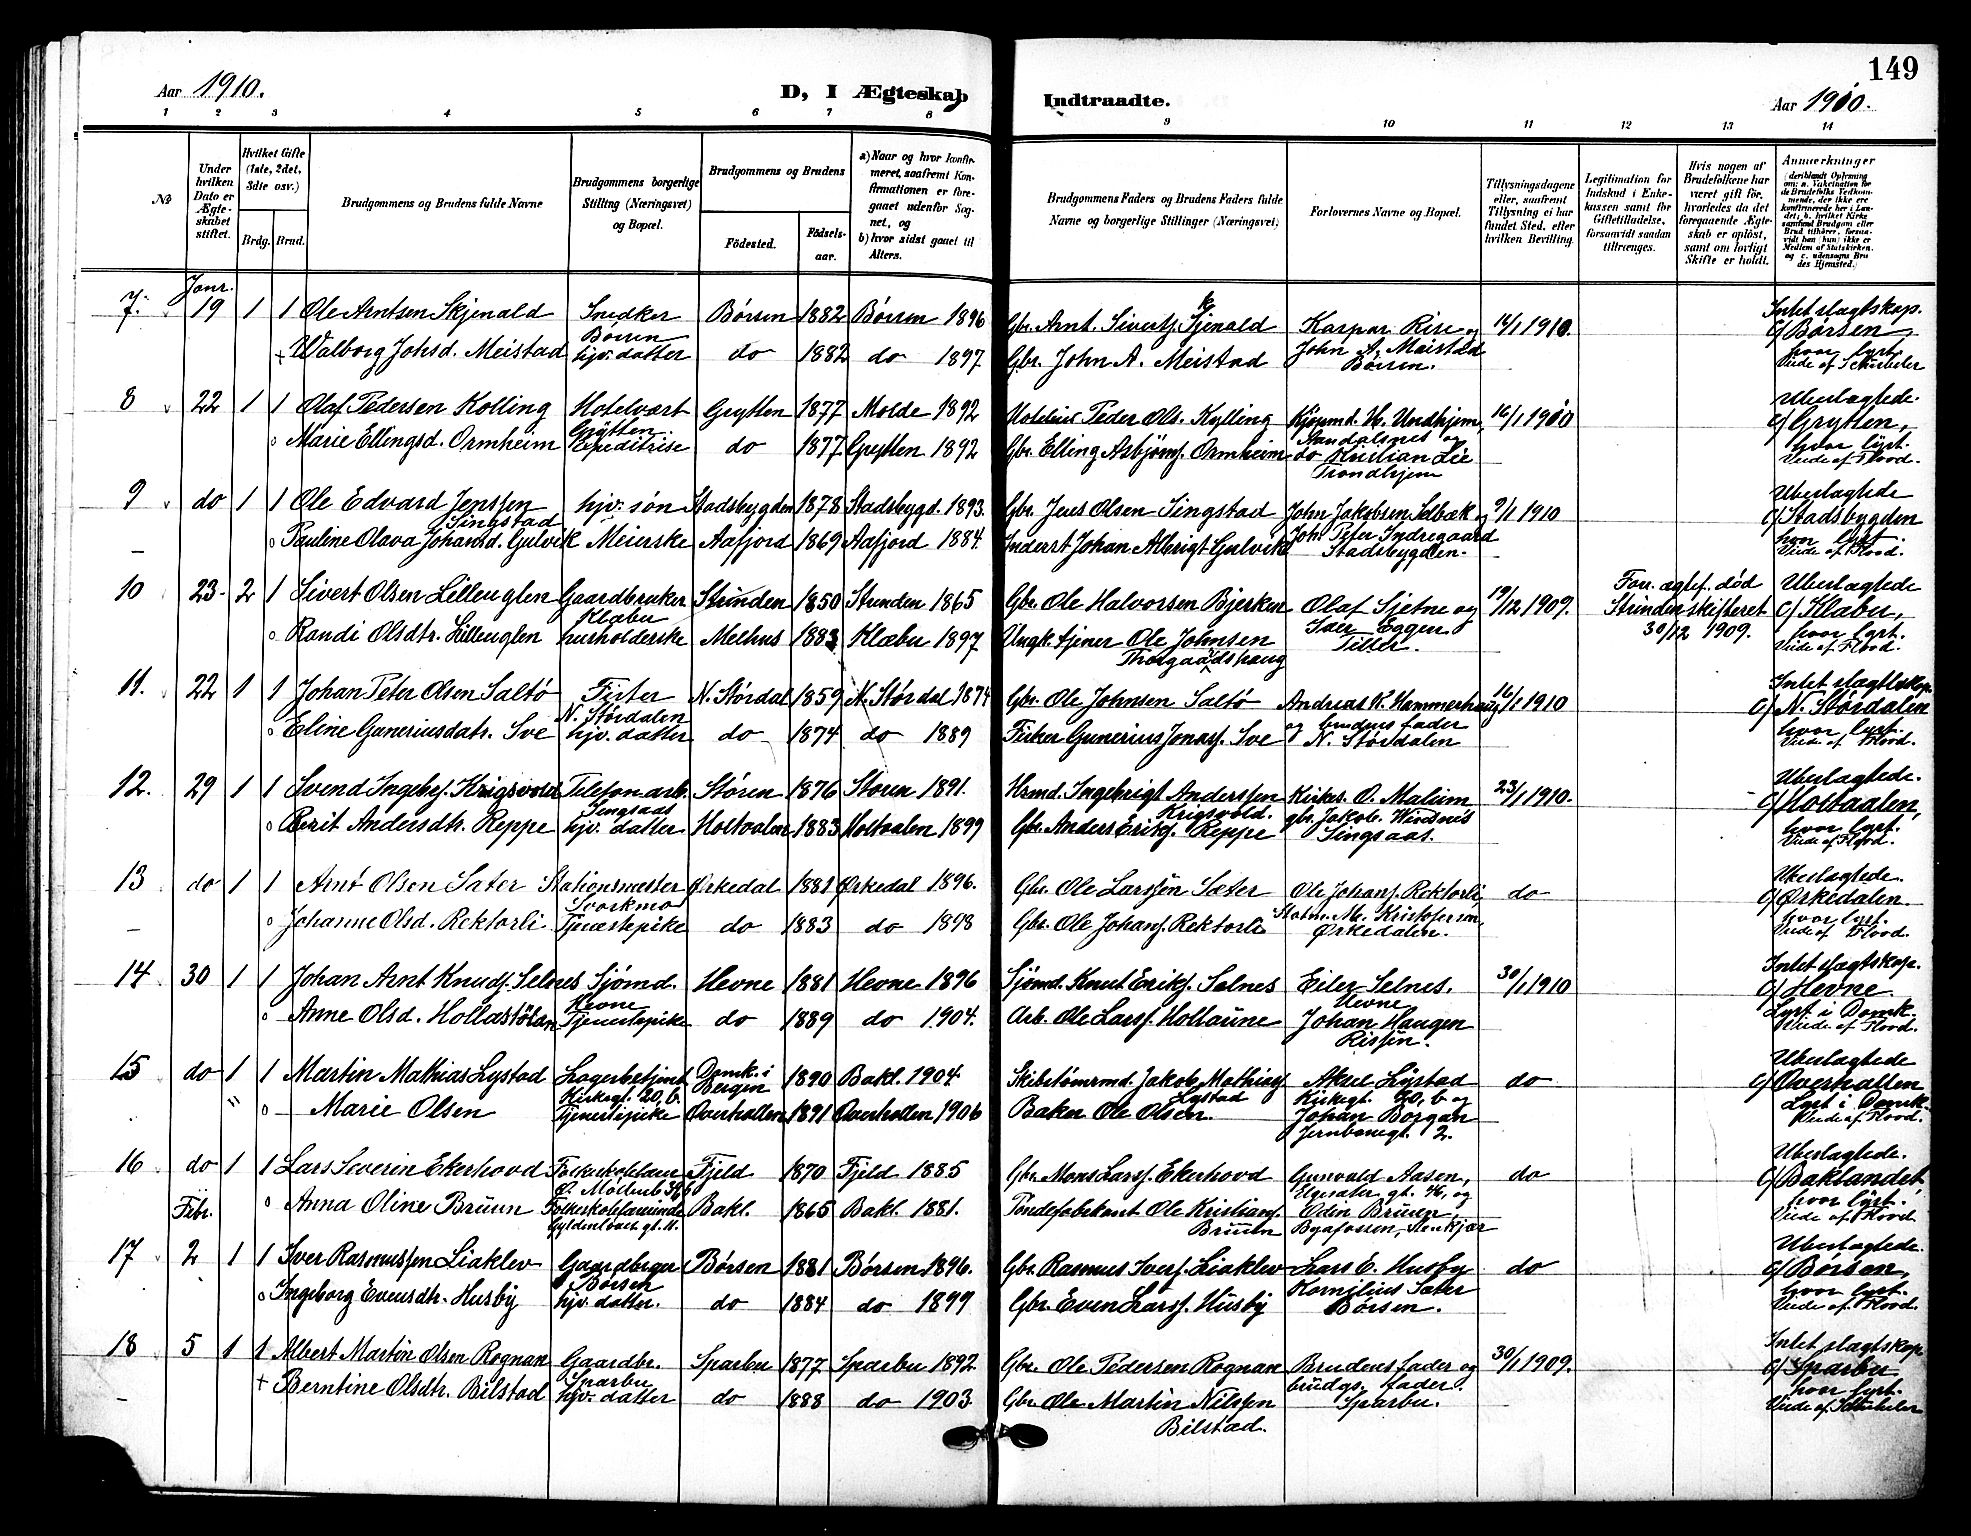 149
Aar 1910.
D, I Ægteskab
Indtraadte.
Aar 1910.
1 2 3 4 5 6 7 8
9 10 11 12 13 14
No
Under hvilken Dato er Ægteskabet stiftet.
Hvilket Gifte (1ste, 2det, 3die osv.)
Brdg. Brud.
Brudgommens og Brudens fulde Navne
Brudgommens borgerlige Stilling (Næringsvei) og Bopæl.
Brudgommens og Brudens
Fødested.
Fødselsaar.
a) Naar og hvor konfirmeret, saafremt Konfirmationen er foregaaet udenfor Sognet, og
b) hvor sidst gaaet til Alters.
Brudgommens Faders og Brudens Faders fulde Navne og borgerlige Stillinger (Næringsvei)
Forlovernes Navne og Bopæl.
Tillysningsdagene eller, saafremt Tillysning ei har fundet Sted, efter hvilken Bevilling.
Legitimation for Indskud i Enkekassen samt for Giftetilladelse, forsaavidt saadan tiltrænges.
Hvis nogen af Brudefolkene har været gift før, hvorledes da det foregaaende Ægteskab er opløst, samt om lovligt Skifte er holdt.
Anmerkninger
(deriblandt Oplysning om: a. Vakcination for de Brudefolks Vedkommende, der ikke ere konfirmerede her i Landet; b. hvilket Kirkesamfund Brudgom eller Brud tilhører, forsaavidt han (hun) ikke er Medlem af Statskirken, og c. udensogns Brudes Hjemsted.)
Janr.
7. 19 1 1 Ole Arntsen Skjenald Snedker Børsen 1882 Børsen 1896 Gbr. Arnt Siverts. Skjenald Kaspar Rise og 14/1 1910. Intet slagtskap.
Børsen John A. Meistad c/ Børsen,
+ Valborg Johsd. Meistad hjv. datter do 1882 do 1897 Gbr. John A. Meistad Børsen. hvor lyst.
Viede af Schübeler
8 22 1 1 Olaf Pedersen Kolling Hotelvært Grytten 1877 Molde 1892 Peder Ols. Kylling Kjøpmd. H. Undhjem, 16/1 1910 Ubeslagtede.
Grytten Aandalsnes og c/ Grytten,
o Marie Ellingsd. Ormheim Expeditrise do 1877 Grytten 1892 Gbr. Elling Asbjørns. Ormheim do Kristian Lie hvor lyst.
Trondhjem Viede af Flood.
9 do 1 1 Ole Edvard Jenssen hjv. søn Stadsbygden 1878 Stadsbygd. 1893. Gbr. Jens Olsen Singstad John Jakobsen Selbæk og 9/1 1910 Ubeslagtede
Singstad Joh. Peter Indregaard c/ Stadsbygden
o Pauline Olava Johansd. Gulvik Meierske Aafjord 1869 Aafjord 1884. Inderst Johan Albrigt Gulvik Stadsbygden. hvor lyst.
Viede af Flood.
10 23. 2 1 Sivert Olsen Lilleuglen Gaardbruker Strinden 1850 Strinden 1865 Gbr. Ole Halvorsen Bjerken Olaf Sjetne og 19/12 1909. Forr. ægtef. død Ubeslagtede
Klæbu Iver Eggen Strinden skifteret c/ Klæbu,
o Randi Olsdtr. Lilleuglen husholderske Melhus 1883 Klæbu 1897 Ungk. tjener Ole Johnsen Tiller. 30/12 1909. hvor lyst.
Thorgaardshaug Viede af Flood.
11. 22 1 1 Johan Peter Olsen Saltø Fisker N. Størdal 1859 N. Størdal 1874 Gbr. Ole Johnsen Saltø Andreas K. Hammerhaug 16/1 1910 Intet slagtskap.
N. Størdalen og brudens fader c/ N. Størdalen
o Eline Guneriusdatr. Sve hjv. datter do 1874 do 1889 Fisker Gunerius Jonass. Sve N. Størdalen hvor lyst.
Viede af Flood.
12. 29 1 1 Svend Ingebs. Krigsvold Telefonarb. Støren 1876 Støren 1891. Hsmd. Ingebrigt Anderssen Kirkes. O. Malum 23/1 1910. Ubeslagtede.
Singsaas Krigsvold. gbr. Jakob. Windsnes c/ Holtaalen,
o Berit Andersdtr. Reppe hjv. datter Holtaalen 1883 Holtaalen 1899 Gbr. Anders Eriks. Reppe Singsaas. hvor lyst.
Viede af Flood.
13 do 1 1 Arnt Olsen Sater Stationsmester Ørkedal 1881 Ørkedal 1896. Gbr. Ole Larssen Sæter Ole Johans. Rektorli, do Ubeslagtede.
Svorkmo M. Kristofersen, c/ Ørkedalen.
o Johanne Olsd. Rektorli Tjenestepike do 1883 do 1898 Gbr. Ole Johans. Rektorli Ørkedalen. hvor lyst.
Viede af Flood.
14 30 1 1 Johan Arnt Knuds. Selnes Sjømd. Hevne 1881 Hevne 1896 Sjømd. Knut Eriks. Selnes Eiler Selnes. 30/1 1910 Intet slagtskap.
Hevne Hevne c/ Hevne.
o Anne Olsd. Hollastølan Tjenestepike do 1889 do 1904. Arb. Ole Larss. Holtaune Johan Haugen Lyst i Domk.
Rissen. Viede af Flood.
15 do 1 1 Martin Mathias Lystad Lagerbetjent Domk. i Bergen 1890 Bakl. 1904. Skibstømrmd. Jakob Mathias. Aksel Lystad do Ubeslagtede
Kirkegt. 20, b. Lystad Kirkegt. 20, b og c/ Overhallen
" o Marie Olsen Tjenestepike Overhallen 1891 Overhallen 1906 Baker Ole Olsen. Johan Borgan Lyst i Domk.
Jernbanegt. 2. Viede af Flood.
16 do 1 1 Lars Severin Ekerhovd Fjeld 1870 Fjeld 1885 Gbr. Mons Larss. Ekerhovd Gunvald Aasen, do Ubeslagtede.
Ø. Møllenb. Elgesæter gt. og c/ Baklandet
Febr. o Anna Oline Brüun Folkeskolelærerinde Bakl. 1865 Bakl. 1881. Tøndefabrikant Ole Kristians. Edin Brüun, hvor lyst.
Gyldenløves gt. 11. Brüun Byafossen, Stenkjær Viede af Flood
17 2 1 1 Iver Rasmussen Liaklev Gaardbruger Børsen 1881 Børsen 1896. Gbr. Rasmus Ivers. Liaklev Lars E. Husby do Ubeslagtede.
Børsen Kornilius Sæter c/ Børsen,
o Ingeborg Evensdtr. Husby hjv. datter. do 1884 do 1899 Gbr. Even Larss. Husby Børsen. hvor lyst.
Viede af Flood.
18 5 1 1 Albert Martin Olsen Rognan Gaardbr. Sparbu 1877 Sparbu 1892 Gbr. Ole Pedersen Rognan Brudens fader og 30/1 1909. Intet slagtskap
Sparbu brudgs. fader. c/ Sparbu
+ Berntine Olsdtr. Bilstad hjv. datter do 1888 do 1903 Gbr. Ole Martin Nilssen Sparbu. hvor lyst.
Bilstad. Viede af Schübeler